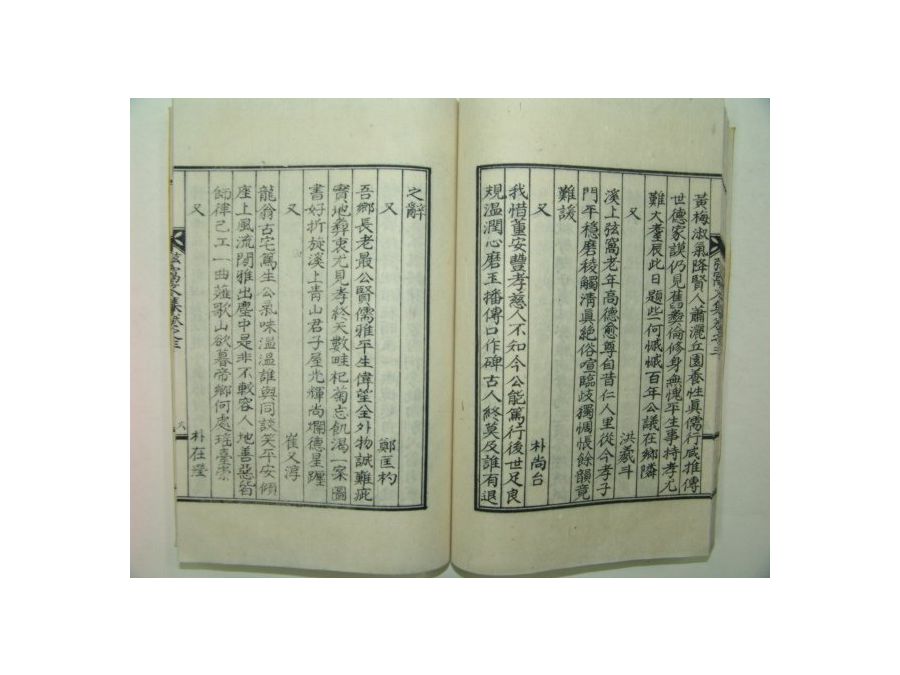 黃梅淑氣降賢人蕭灑丘園養性眞儒行咸推傳
世德家謨仍見舊彝倫修身無愧平生事持孝尤
難大耋辰此日題些何慽慽百年公議在鄉隣
又 洪羲斗
溪上弦窩老年高德愈尊自昔仁人里從今孝子
門平穩磨稜觸淸眞絶俗喧臨歧獨惆悵餘韻竟
難諼
又 朴尚台
我惜董安豐孝慈人不知今公能篤行後世足良
規溫潤心磨玉播傳口作碑古人終莫及誰有退
之辭
又 鄭匡杓
吾鄉長老最公賢儒雅平生偉望全外物誠難疵
實地彝衷尤見孝終天數畦杞菊忘飢渴一案圖
書好折旋溪上靑山君子屋光輝尚爛德星躔
又 崔又淳
龍翁古宅篤生公氣味溫溫誰與同談笑平安傾
座上風流閒雅出塵中是非不較容人地善惡皆
師律己工一曲薤歌山欲暮帝鄉何處瑤臺崇
又 朴在瀅
弦窩文集卷之三
弦窩文集卷之三 八